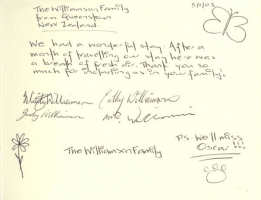 The Williamson Family
from Queenstown
New Zealand.
We had a wonderful stay. After a
month of travelling our stay here was
a breath of fresh air. Thank you so
much for including us in your family.
Williamson Cathy Williamson
Judy Williamson
The Williamson Family
PS. We'll miss
Oscar!!!